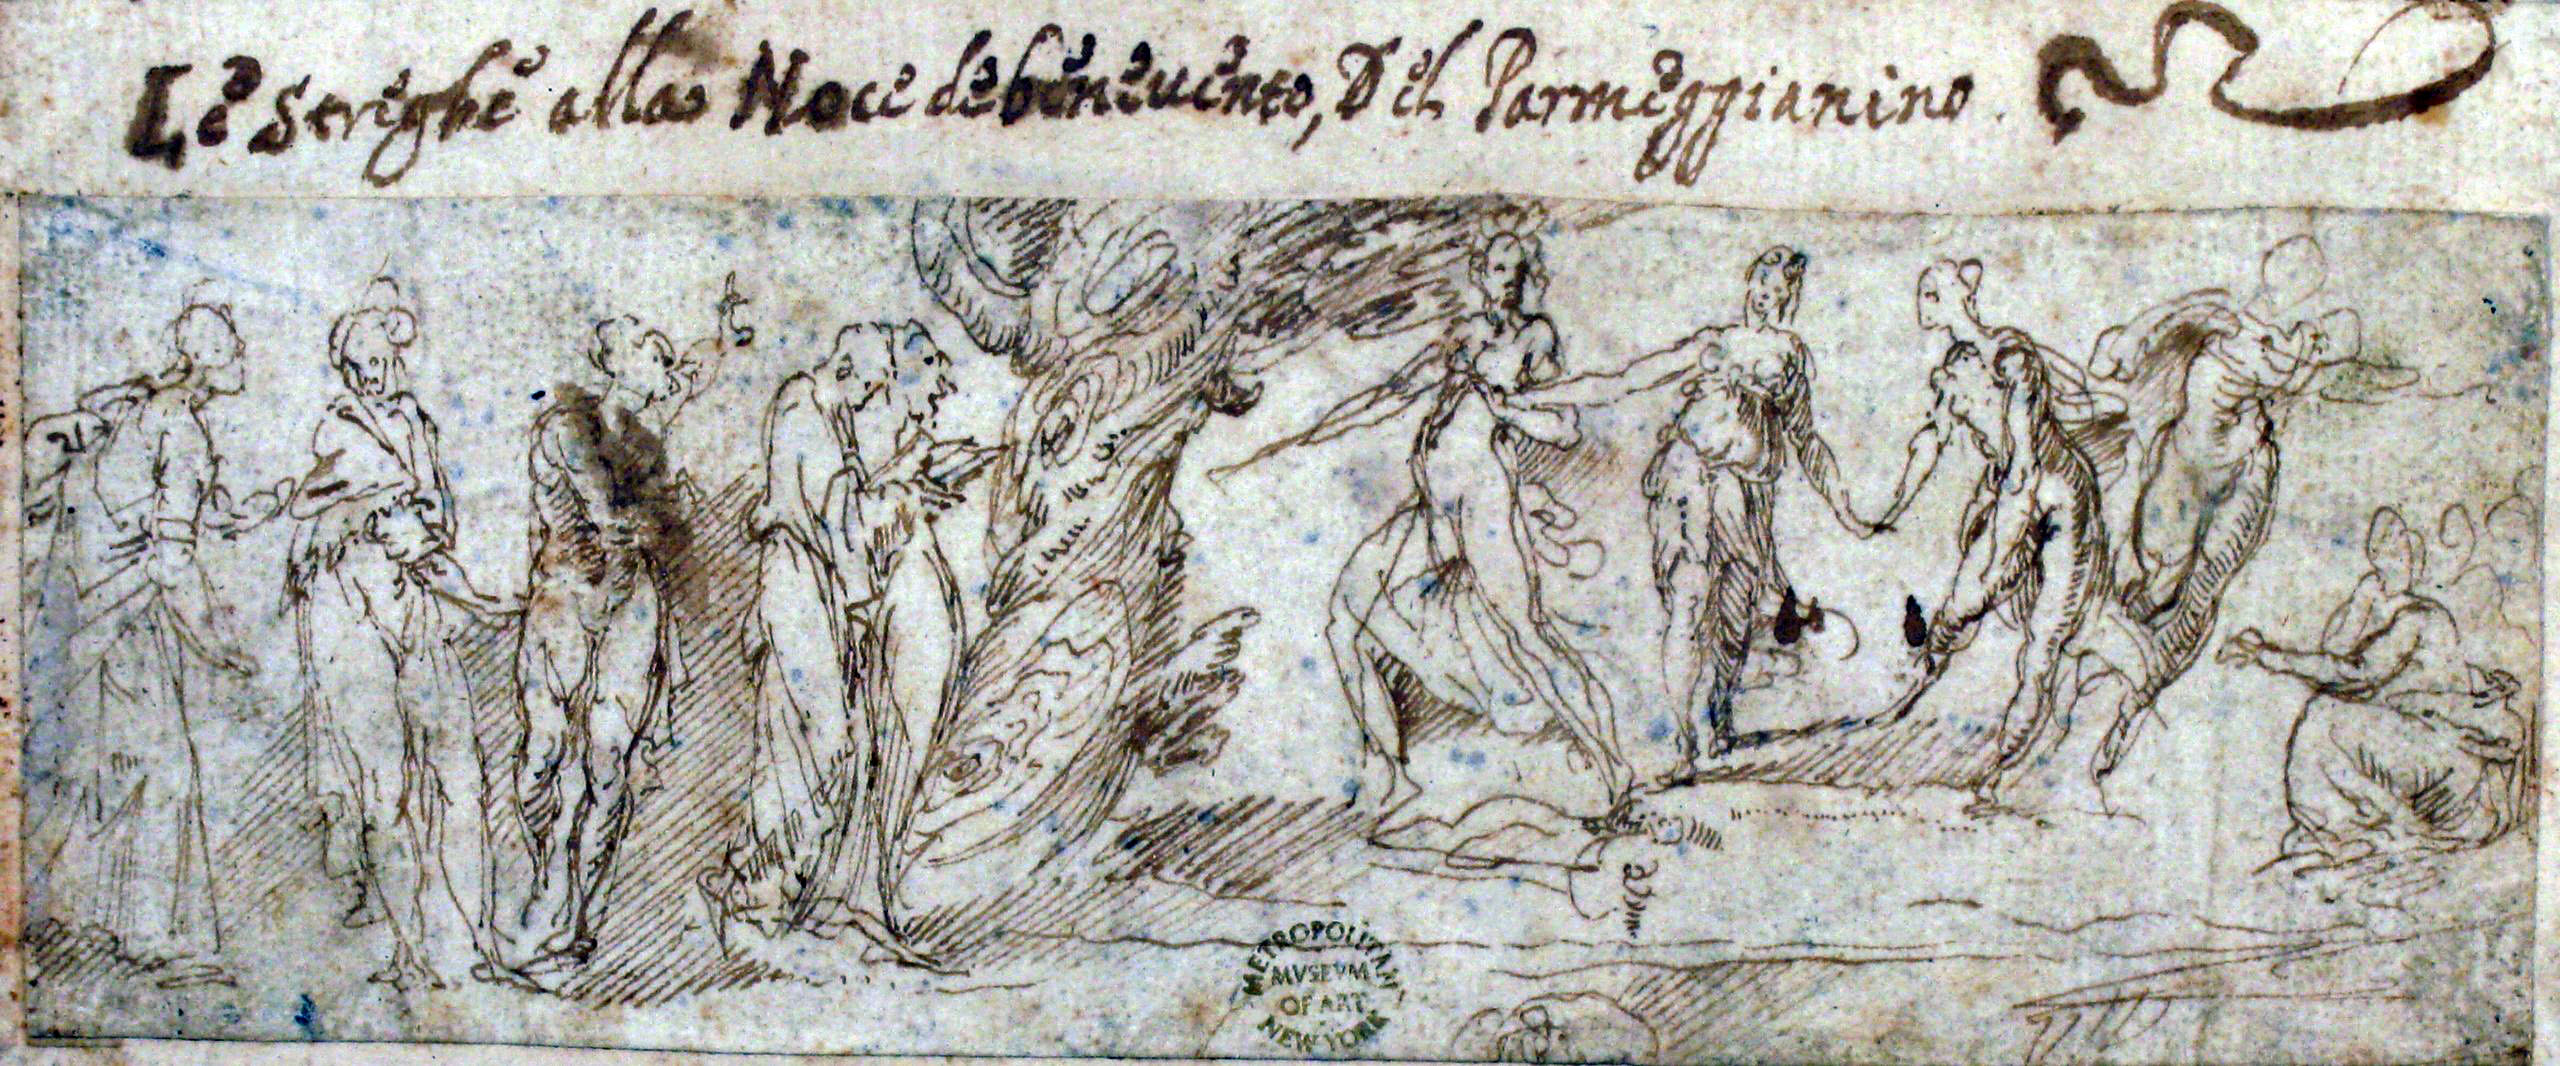 Le Streghe alla Noce de beneuento, Del Parmeggianino.
METROPOLITAN
MVSEVM
OF ART
NEW YORK